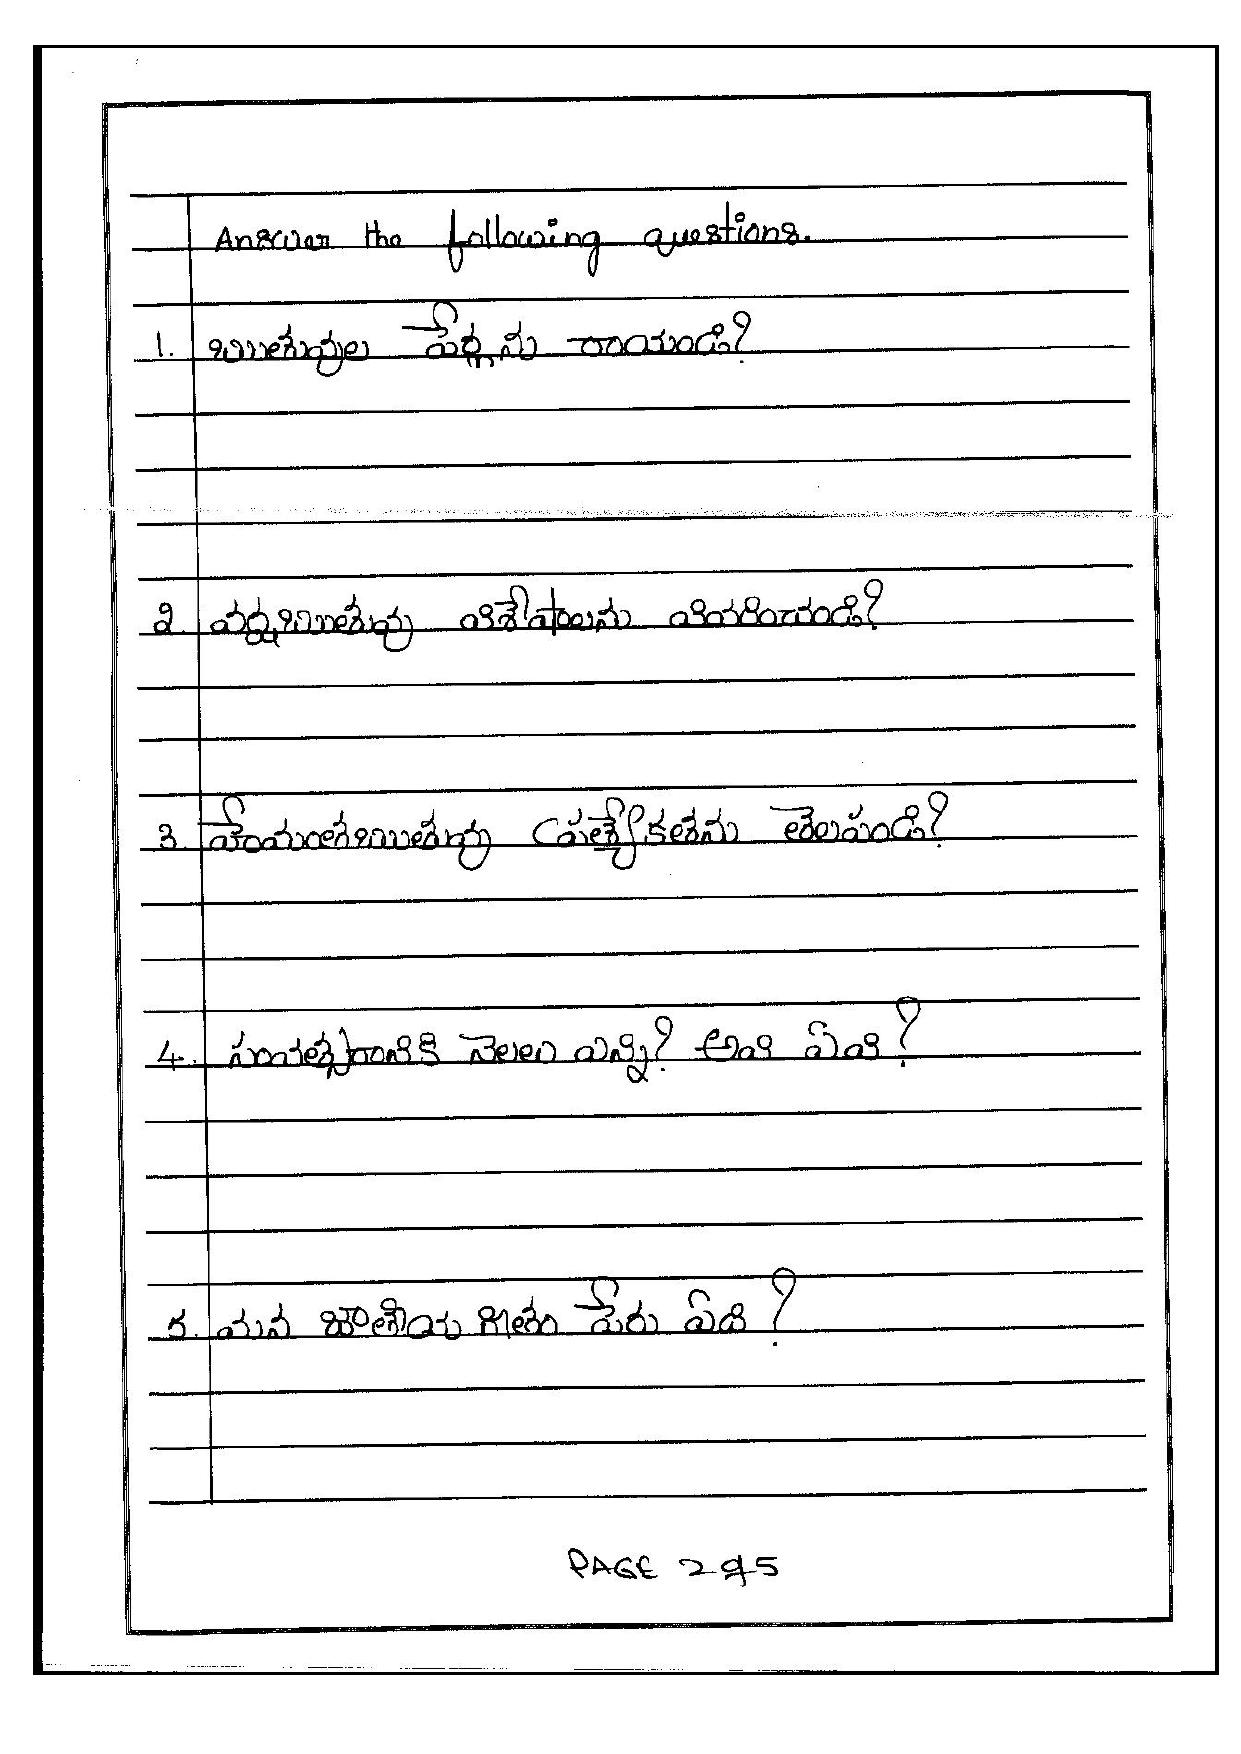 Answer the following questions.
1. ఋతువుల పేర్లను రాయండి?
2. వర్షఋతువు విశేషాలను వివరించండి?
3. హేమంతఋతువు ప్రత్యేకతను తెలపండి?
4. సంవత్సరానికి నెలలు ఎన్ని? అవి ఏవి?
5. మన జాతీయ గీతం పేరు ఏది?
PAGE 2 of 5